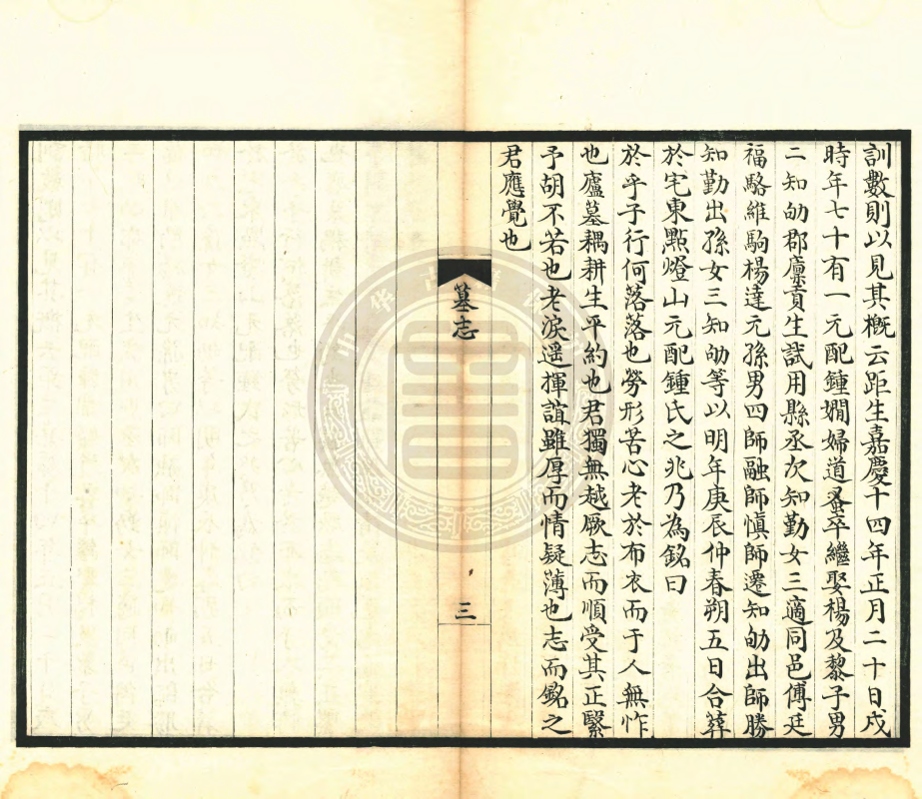 訓數則以見其概云距生嘉慶十四年正月二十日戌
時年七十有一元配鍾嫺婦道蚤卒繼娶楊及黎子男
二知劬郡廩貢生試用縣丞次知勤女三適同邑傅廷
福駱維駒楊達元孫男四師融師慎師遷知劬出師勝
知勤出孫女三知劬等以明年庚辰仲春朔五日合葬
於宅東點燈山元配鍾氏之兆乃為銘曰
於乎子行何落落也勞形苦心老於布衣而于人無怍
也廬墓耦耕生平約也君獨無越厥志而順受其正緊
予胡不若也老淚遥揮誼雖厚而情疑薄也志而銘之
君應覺也
墓志
三